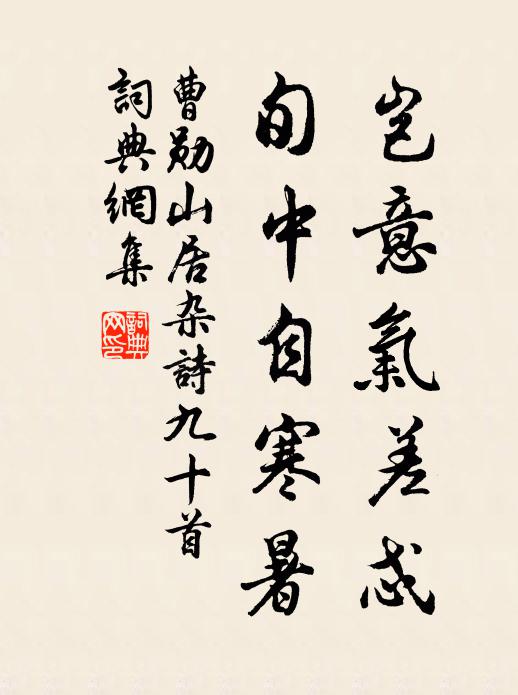 岂意氣差忒
旬中自寒暑
曹勋山居杂詩九十首
詞典網集
詞典网印